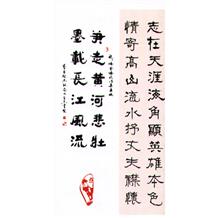 志在天涯海角顯英雄本色
情寄高山流水抒丈夫襟懷
筆走黃河悲壯
墨載長江風流